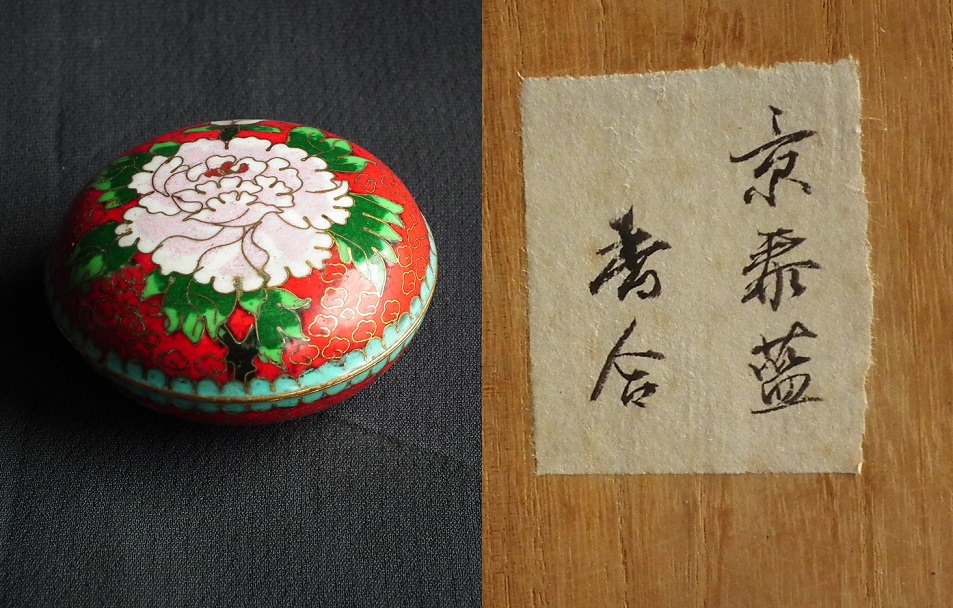 京泰藍
香合